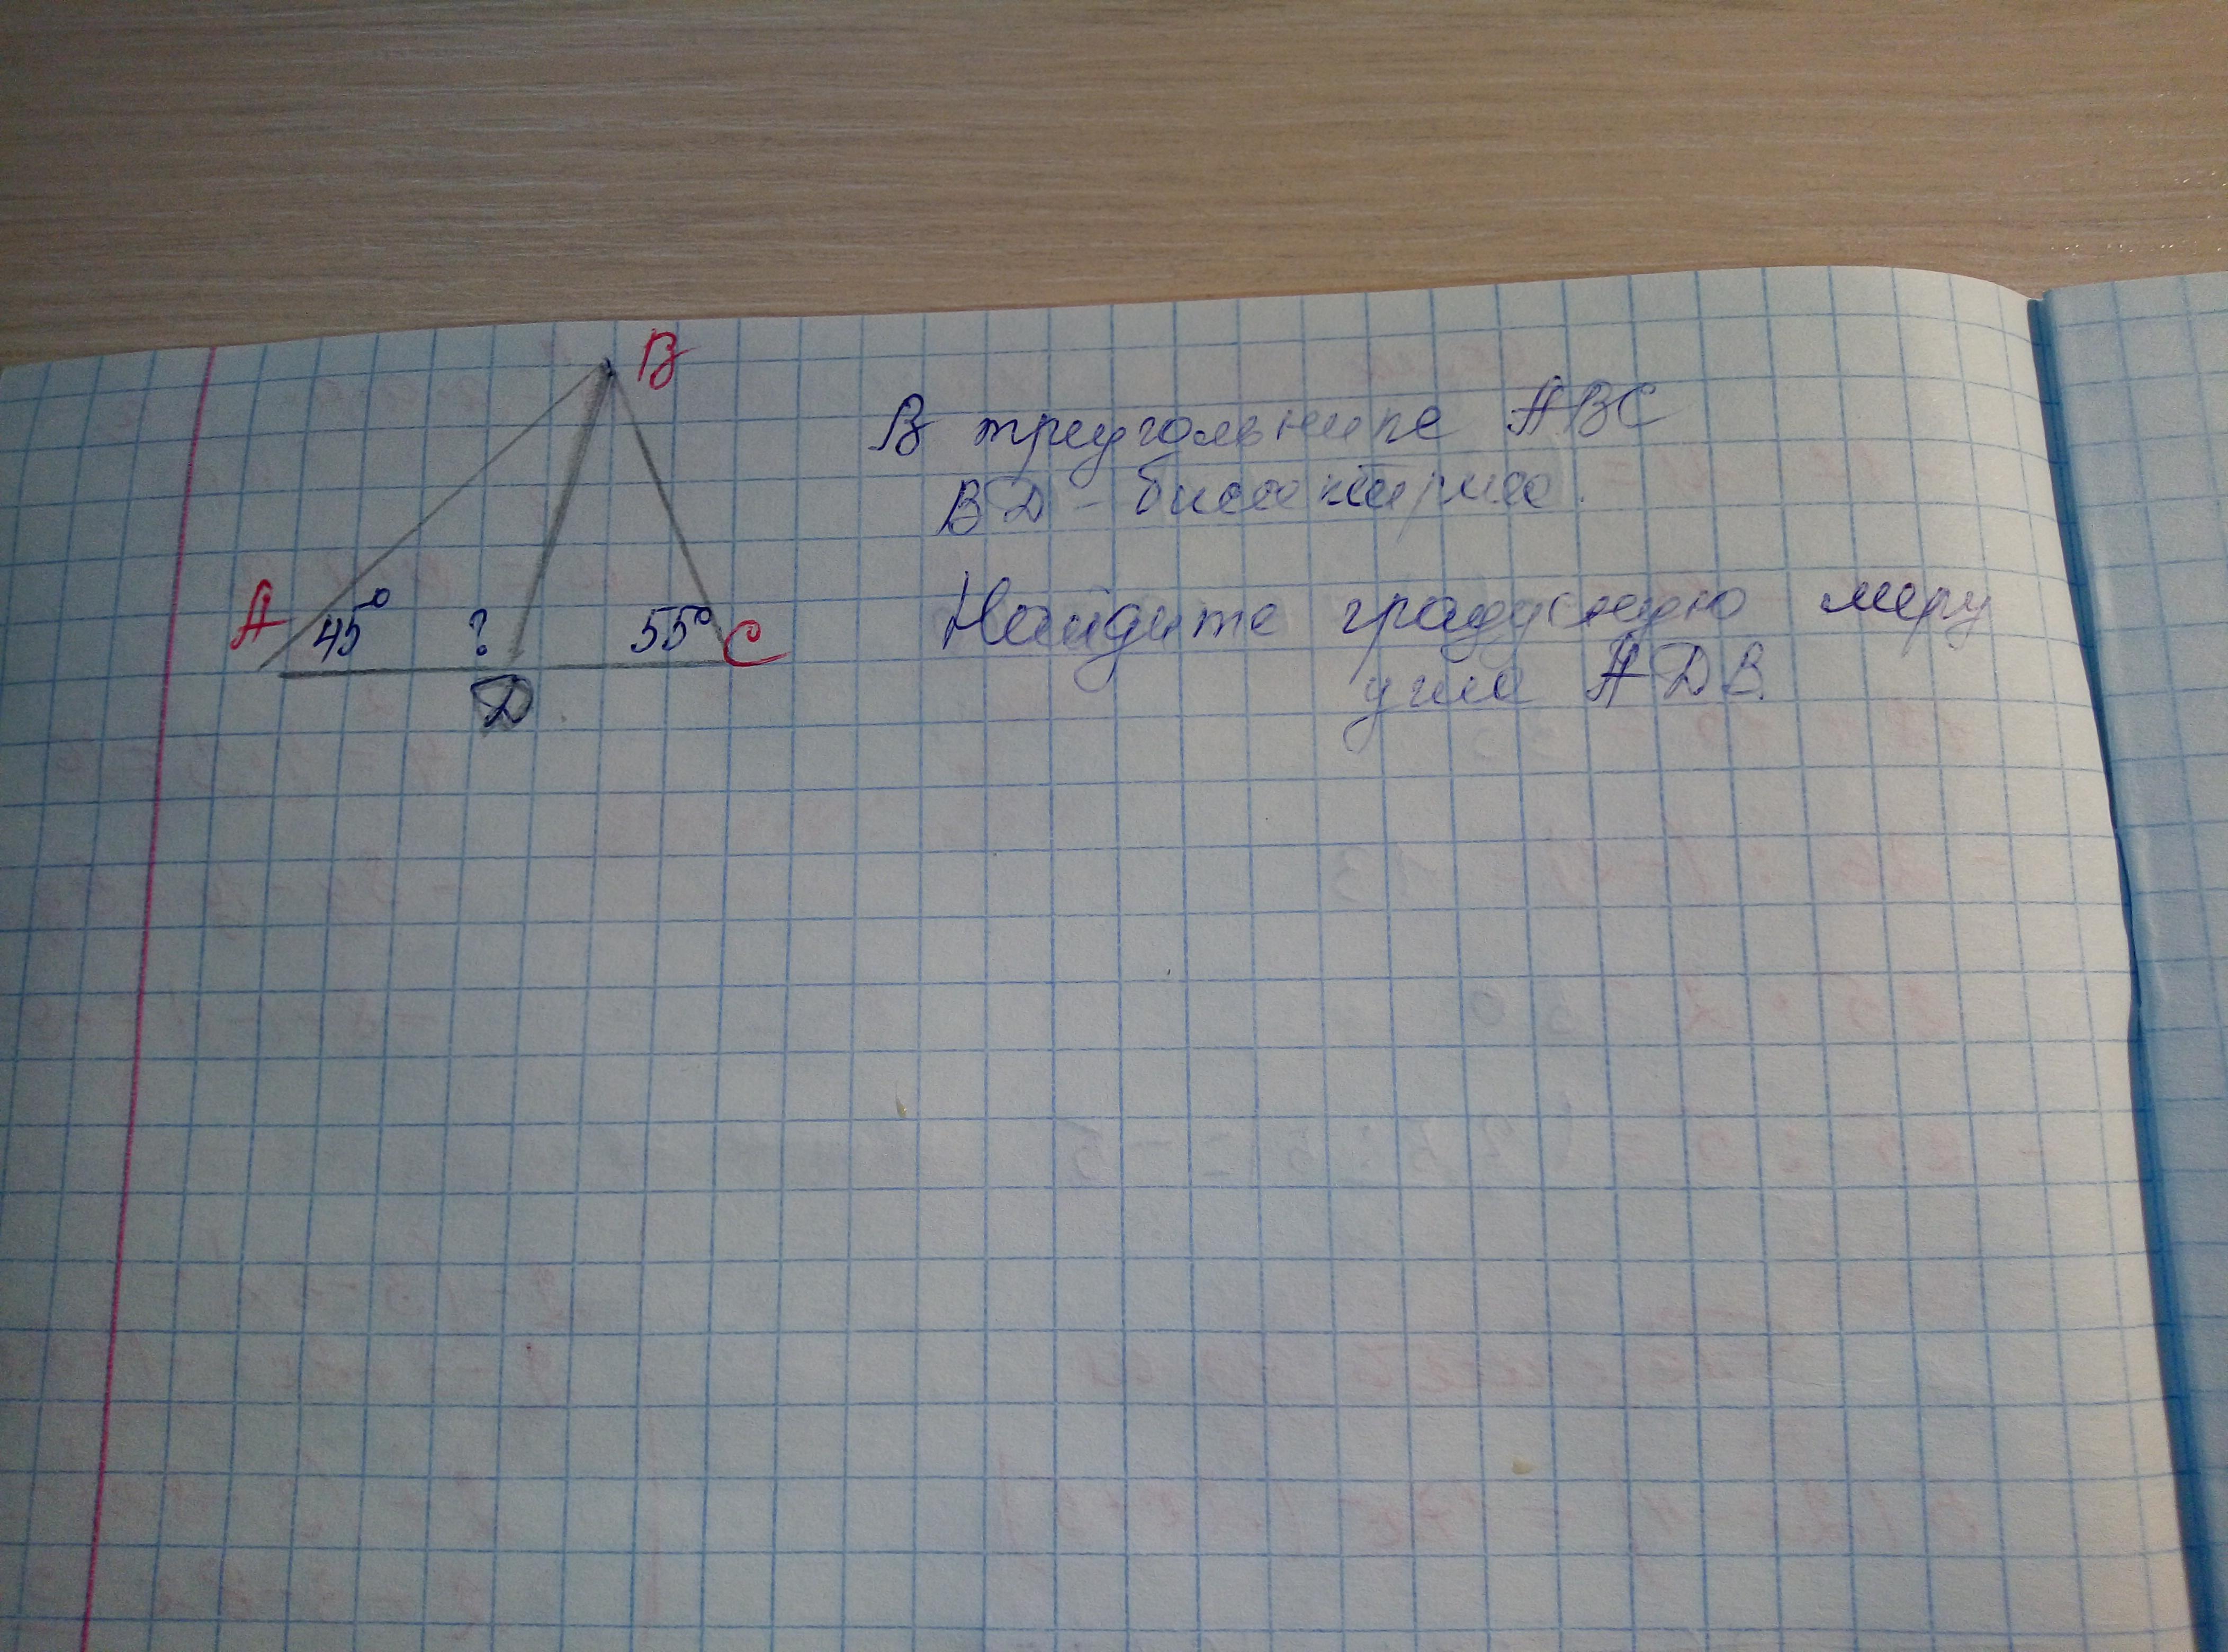 B
A
45°
?
55°
C
D
В треугольнике ABC
BD - биссектриса.
Найдите градусную меру
угла ADB.